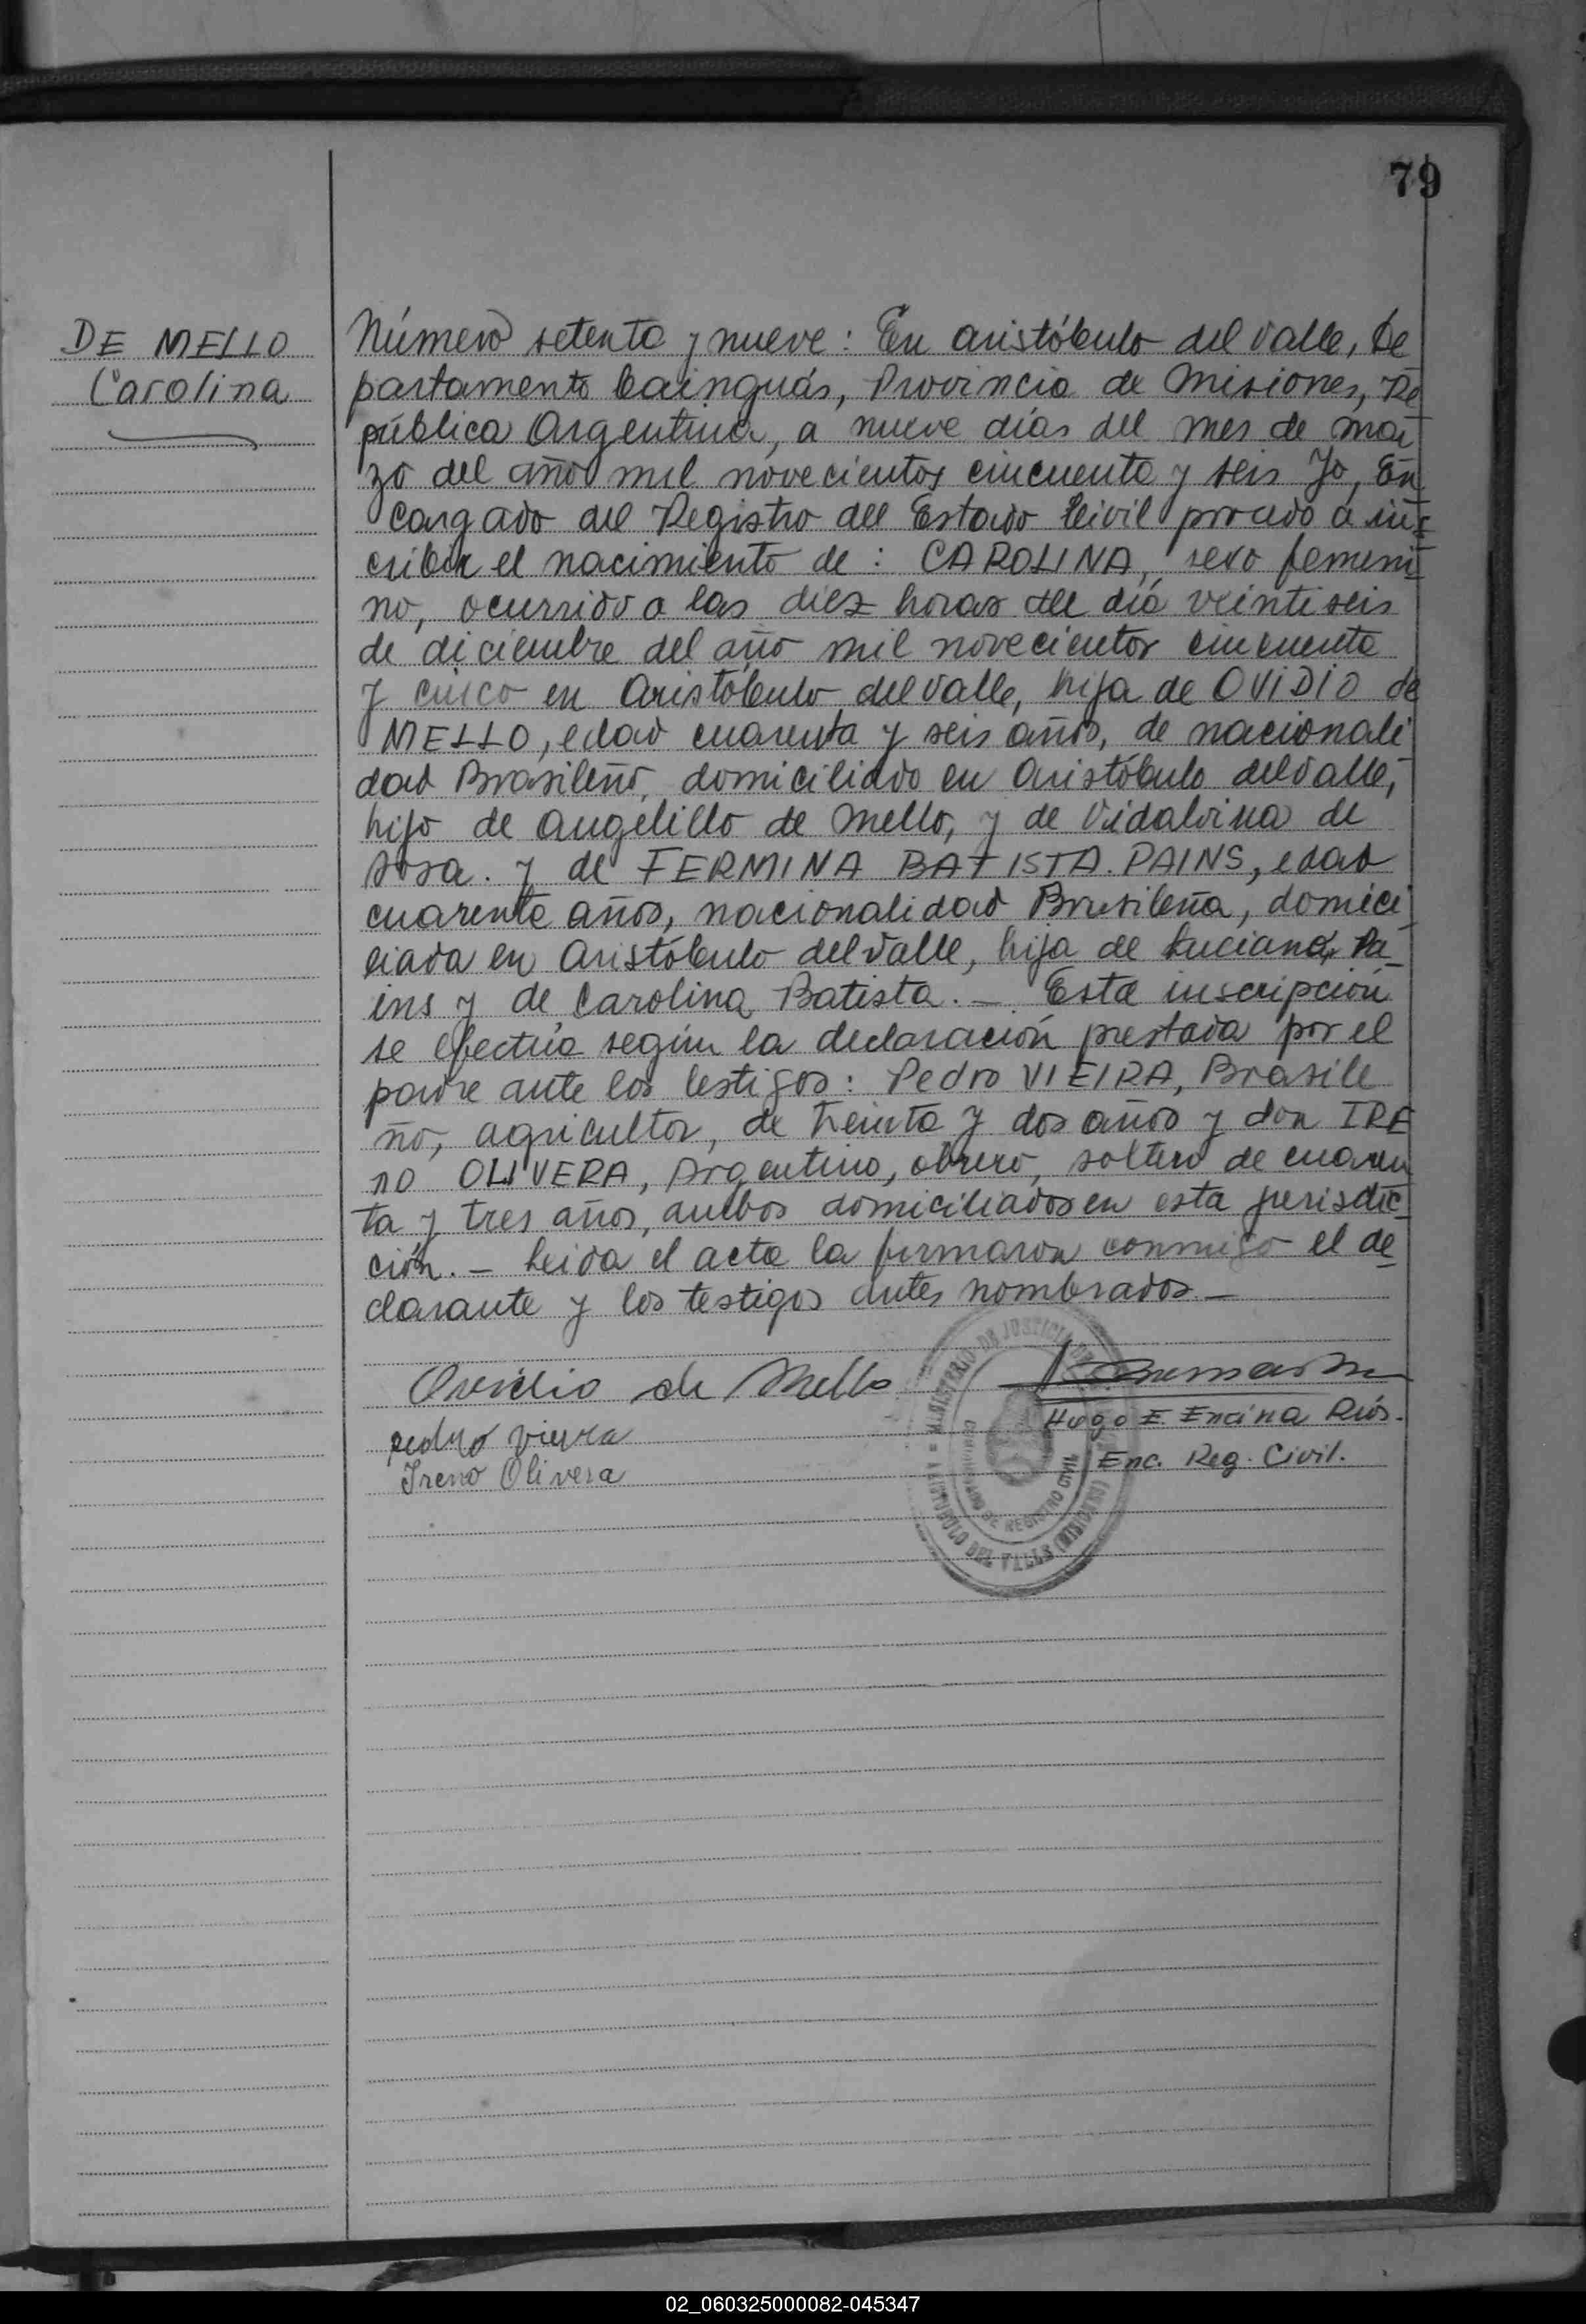 79
DE MELLO
Carolina
Número setenta y nueve: En Aristóbulo del Valle, De
partamento Cainguás, Provincia de Misiones, Re
pública Argentina, a nueve días del mes de mar
zo del año mil novecientos cincuenta y seis Yo, En
cargado del Registro del Estado Civil procedo a ins
cribir el nacimiento de: CAROLINA, sexo femeni
no, ocurrido a las diez horas del día veintiseis
de diciembre del año mil novecientos cincuenta
y cinco en Aristóbulo del Valle, hija de OVIDIO de
MELLO, edad cuarenta y seis años, de nacionali
dad Brasileño, domiciliado en Aristóbulo del Valle,
hijo de Angelillo de Mello, y de Vidalvina de
Sosa. y de FERMINA BATISTA. PAINS, edad
cuarenta años, nacionalidad Brasileña, domici
liada en Aristóbulo del Valle, hija de Luciano Pa
ins y de Carolina Batista. — Esta inscripción
se efectúa según la declaración prestada por el
padre ante los testigos: Pedro VIEIRA, Brasile
ño, agricultor, de treinta y dos años y don IRE
NO OLIVERA, Argentino, obrero, soltero de cuaren
ta y tres años, ambos domiciliados en esta jurisdic
ción. — Leida el acta la firmaron conmigo el de
clarante y los testigos antes nombrados —
Ovidio de Mello
pedro vieira
Ireno Olivera
Hugo E. Encina Ríos.
Enc. Reg. Civil.
MINISTERIO DE JUSTICIA
ARISTOBULO DEL VALLE (MISIONES)
DE REGISTRO CIVIL
02_060325000082-045347